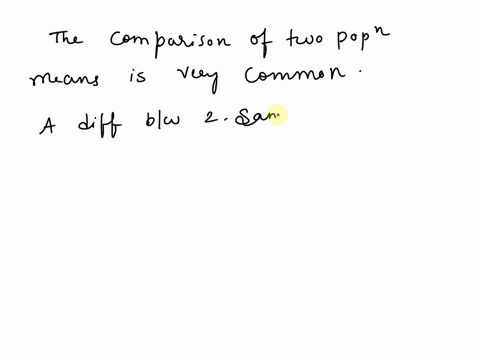 The comparison of two popⁿ
means is very common.
A diff b/w 2. Sam